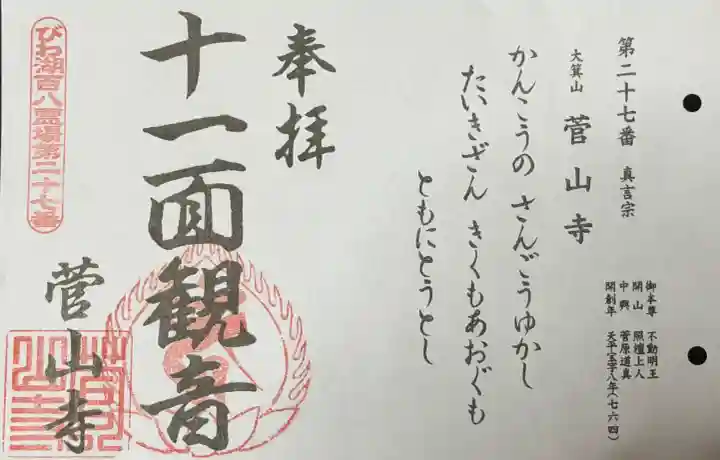 第二十七番 真言宗
大箕山 菅山寺
御本尊 不動明王
開山 照檀上人
中興 菅原道真
開創年 天平宝字八年(七六四)
かんこうの さんごうゆかし
たいきざん きくもあおぐも
ともにとうとし
奉拝
十一面観音
菅山寺
びわ湖百八霊場第二十七番